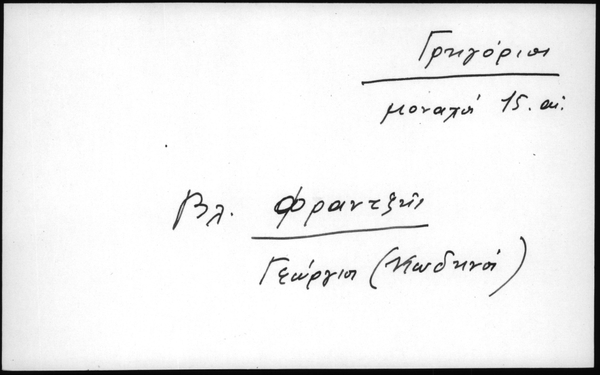 Γρηγόριος
μοναχός 15. αι.
Βλ. Φραντζῆς
Γεώργιος (Κωδικός)